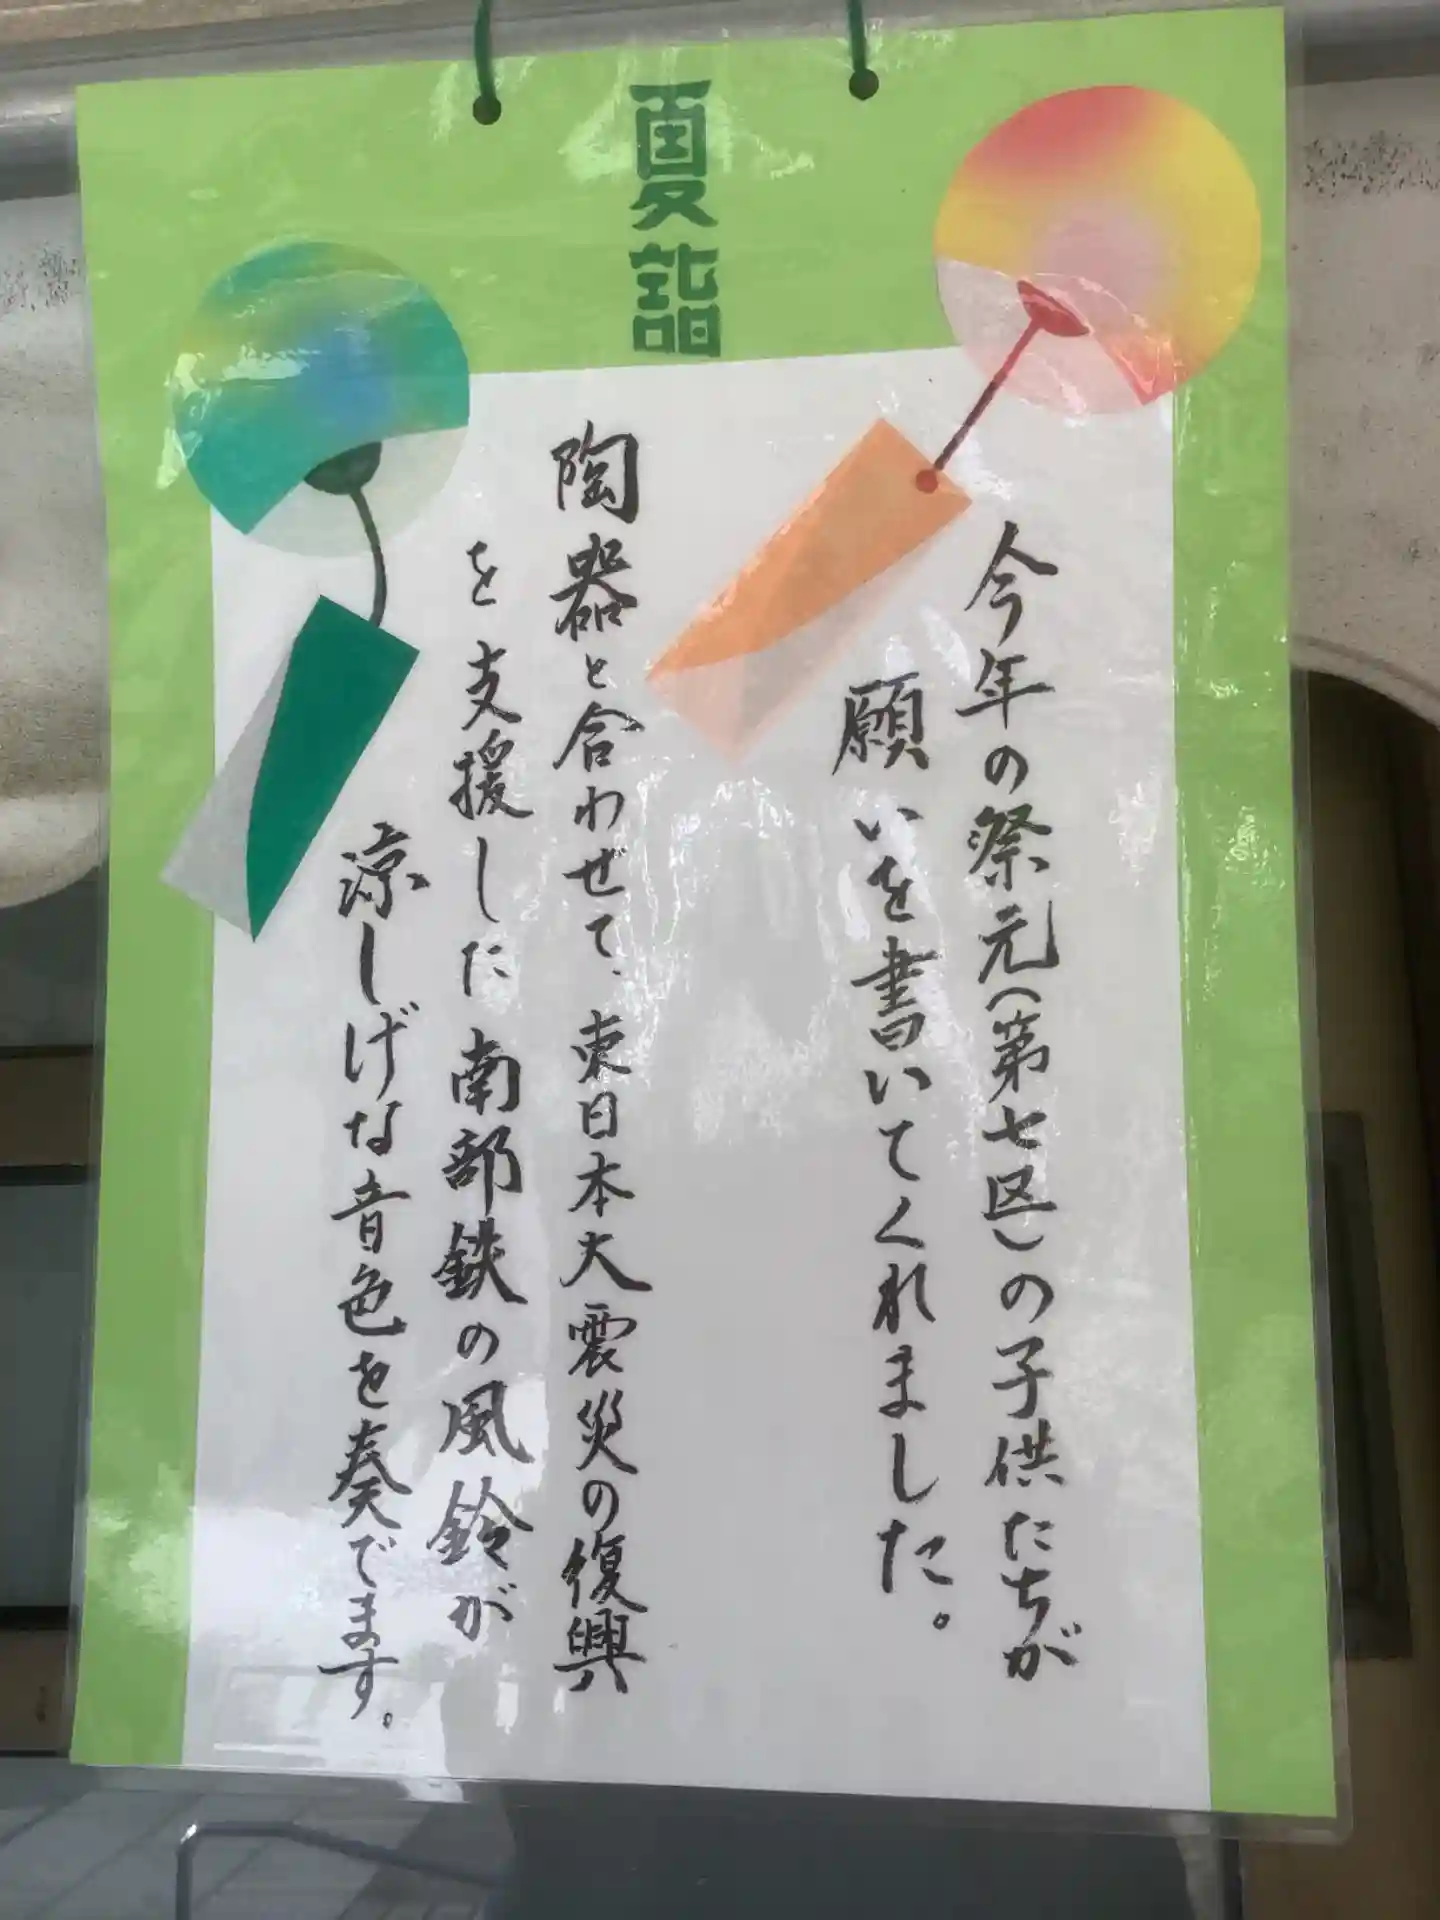 夏詣
今年の祭元(第七区)の子供たちが
願いを書いてくれました。
陶器と合わせて、東日本大震災の復興
を支援した南部鉄の風鈴が
涼しげな音色を奏でます。